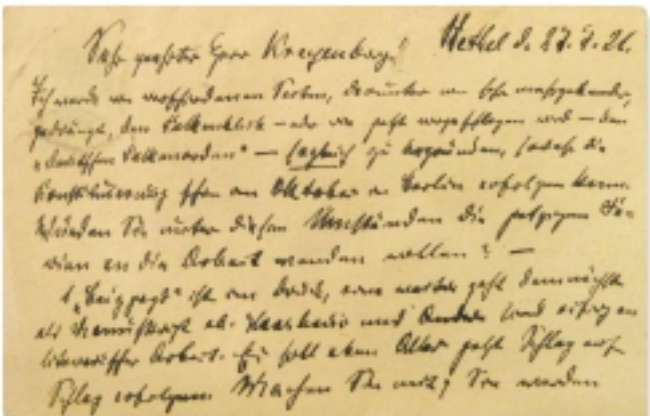 Hethel d. 27.7.21.
Sehr geehrter Herr Kreyenberg!
Ich werde von verschiedenen Seiten, darunter von sehr massgebender,
gedrängt, den Falkenklub – oder wie jetzt vorgeschlagen wird – den
„deutschen Falkenorden“ – sogleich zu begründen, sodass die
Konstituierung schon im Oktober in Berlin erfolgen kann.
Würden Sie unter diesen Umständen die jetzigen Fe-
rien an die Arbeit wenden wollen? –
ist im Druck, eine weiter geht demnächst
als und sind eifrig an
literarischer Arbeit. Es soll eben Alles jetzt Schlag auf
Schlag erfolgen. Machen Sie mit? Sie werden